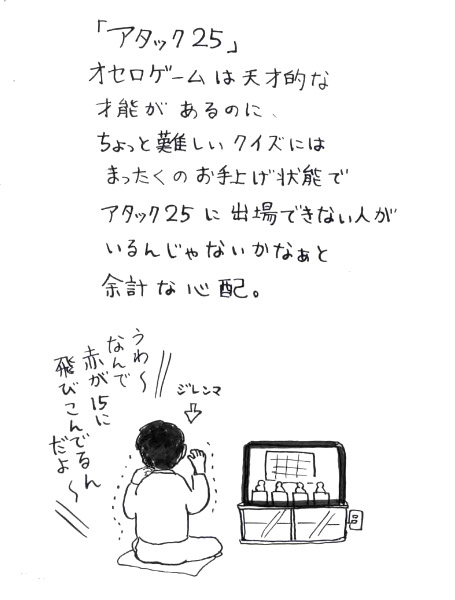 「アタック25」
オセロゲームは天才的な
才能が あるのに、
ちょっと難しいクイズには
まったくのお手上げ状態で
アタック25に出場できない人が
いるんじゃないかなぁと
余計な心配。
うわ〜
なんで
赤が15に
飛びこんでるん
だよ〜
ジレンマ